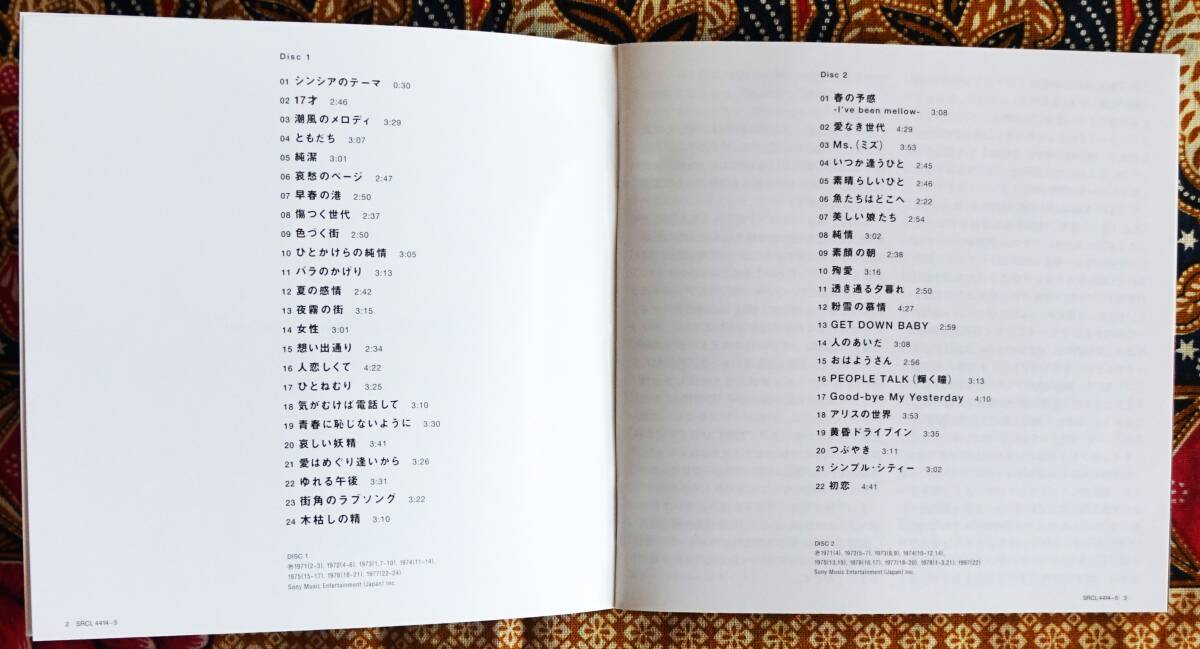 Disc 1
01 シンシアのテーマ 0:30
02 17才 2:46
03 潮風のメロディ 3:29
04 ともだち 3:07
05 純潔 3:01
06 哀愁のページ 2:47
07 早春の港 2:50
08 傷つく世代 2:37
09 色づく街 2:50
10 ひとかけらの純情 3:05
11 バラのかげり 3:13
12 夏の感情 2:42
13 夜霧の街 3:15
14 女性 3:01
15 想い出通り 2:34
16 人恋しくて 4:22
17 ひとねむり 3:25
18 気がむけば電話して 3:10
19 青春に恥じないように 3:30
20 哀しい妖精 3:41
21 愛はめぐり逢いから 3:26
22 ゆれる午後 3:31
23 街角のラブソング 3:22
24 木枯しの精 3:10
DISC 1
℗1971(2-3), 1972(4-6), 1973(1,7-10), 1974(11-14),
1975(15-17), 1976(18-21), 1977(22-24)
Sony Music Entertainment (Japan) Inc.
2 SRCL 4414-5
Disc 2
01 春の予感
-I've been mellow- 3:08
02 愛なき世代 4:29
03 Ms.(ミズ) 3:53
04 いつか逢うひと 2:45
05 素晴らしいひと 2:46
06 魚たちはどこへ 2:22
07 美しい娘たち 2:54
08 純情 3:02
09 素顔の朝 2:38
10 殉愛 3:16
11 透き通る夕暮れ 2:50
12 粉雪の慕情 4:27
13 GET DOWN BABY 2:59
14 人のあいだ 3:08
15 おはようさん 2:56
16 PEOPLE TALK(輝く瞳) 3:13
17 Good-bye My Yesterday 4:10
18 アリスの世界 3:53
19 黄昏ドライブイン 3:35
20 つぶやき 3:11
21 シンプル・シティー 3:02
22 初恋 4:41
DISC 2
℗1971(4), 1972(5-7), 1973(8,9), 1974(10-12,14),
1975(13,15), 1976(16,17), 1977(18-20), 1978(1-3,21), 1997(22)
Sony Music Entertainment (Japan) Inc.
SRCL 4414-5 3